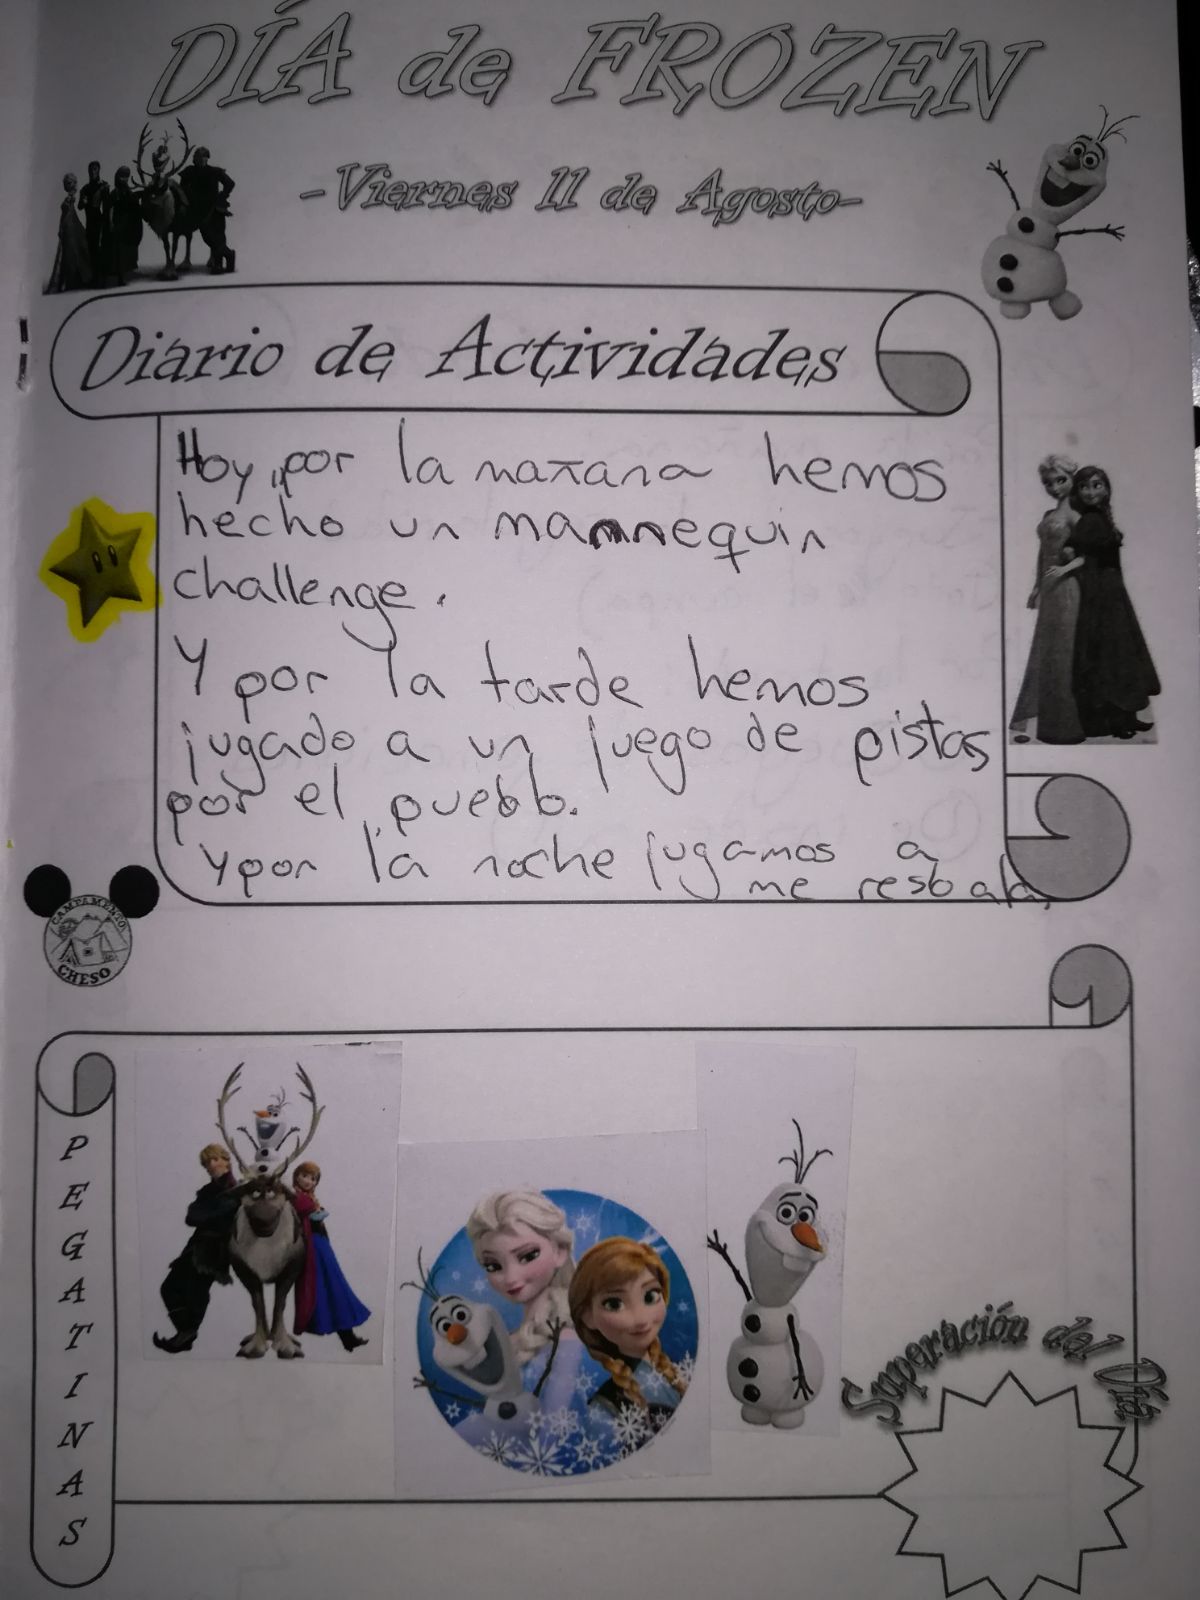 DÍA de FROZEN
-Viernes 11 de Agosto-
Diario de Actividades
Hoy, por la mañana hemos
hecho un mannequin
challenge.
Y por la tarde hemos
jugado a un juego de pistas
por el pueblo.
Y por la noche jugamos a
me resbala.
CAMPAMENTO
CHESO
PEGATINAS
Superación del Día